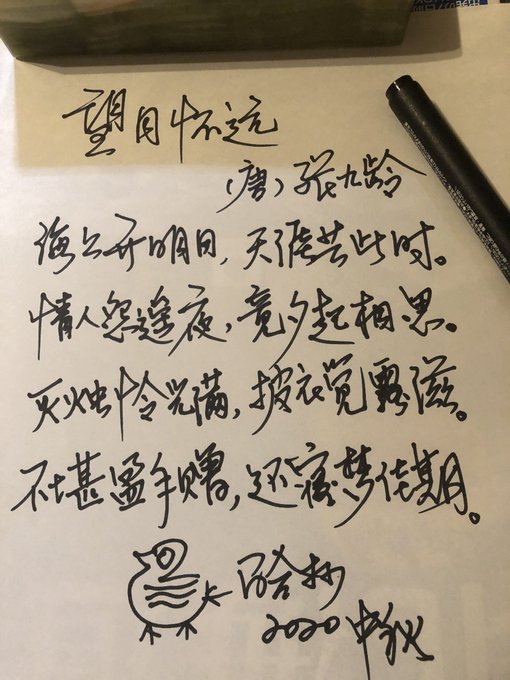 望月怀远
(唐)张九龄
海上升明月，天涯共此时。
情人怨遥夜，竟夕起相思。
灭烛怜光满，披衣觉露滋。
不堪盈手赠，还寝梦佳期。
百合抄
2020 中秋